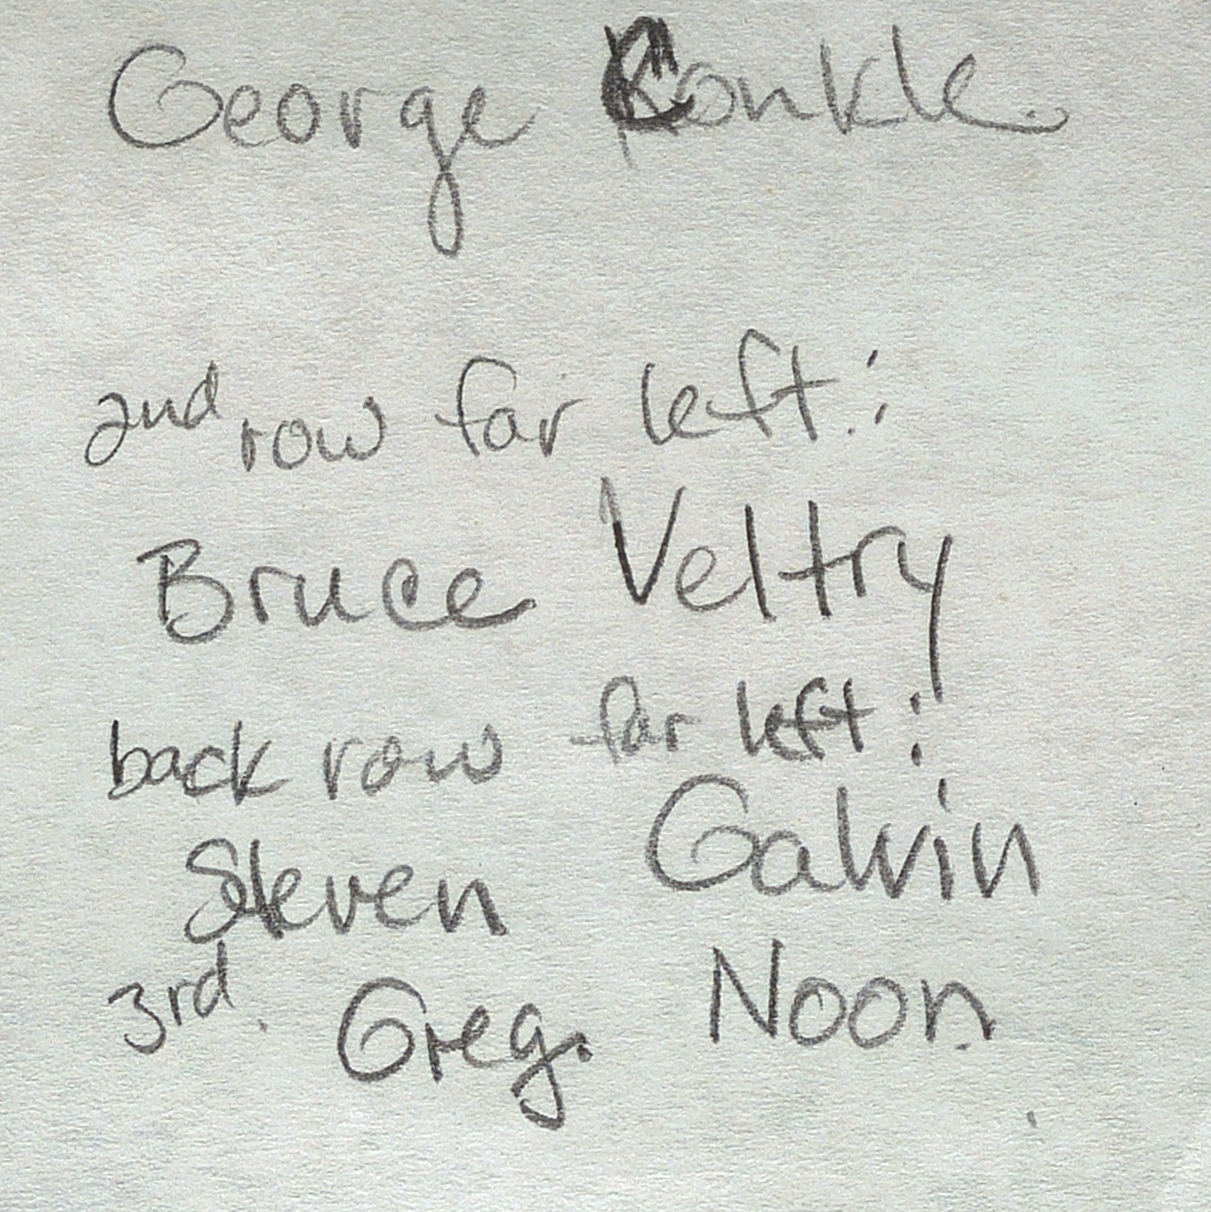 George Conkle
2nd row far left:
Bruce Veltry
back row far left:
Steven Galvin
3rd. Greg. Noon